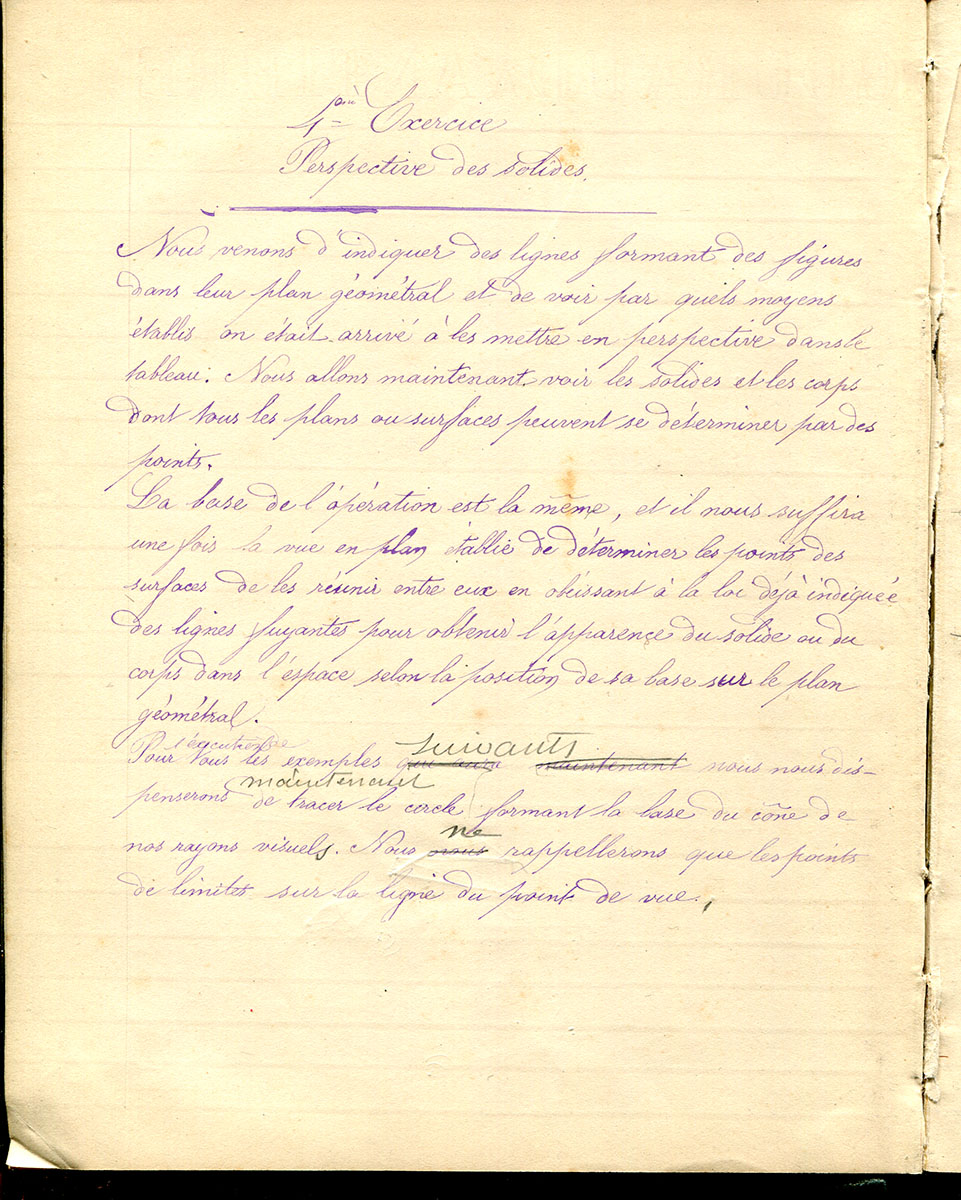 4ème Exercice
Perspective des solides.
Nous venons d'indiquer des lignes formant des figures
dans leur plan géométral et de voir par quels moyens
établis on était arrivé à les mettre en perspective dans le
tableau. Nous allons maintenant voir les solides et les corps
dont tous les plans ou surfaces peuvent se déterminer par des
points.
La base de l'opération est la même, et il nous suffira
une fois la vue en plan établie de déterminer les points des
surfaces de les réunir entre eux en obéissant à la loi déjà indiquée
des lignes fuyantes pour obtenir l'apparence du solide ou du
corps dans l'espace selon la position de sa base sur le plan
géométral.
l'exécution de suivants
Pour tous les exemples maintenant nous nous dis-
maintenant
penserons de tracer le cercle formant la base du cône de
ne
nos rayons visuels. Nous nous rappellerons que les points
de limites sur la ligne du point de vue.